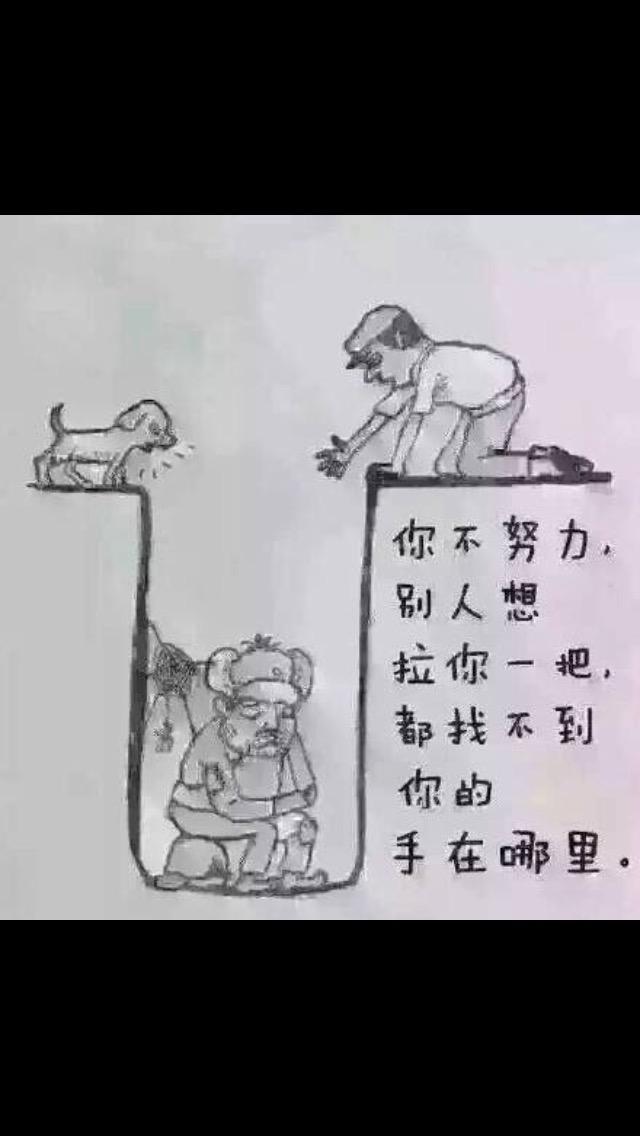 你不努力，
别人想
拉你一把，
都找不到
你的
手在哪里。